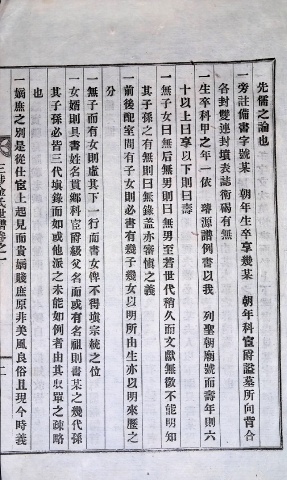 先儒之論也
一旁註備書字號某 朝年生卒享幾某 朝年科宦爵諡墓所向背合
各封雙連封墳表誌衛碣有無
一生卒科甲之年一依 璿源譜例書以我 列聖朝廟號而壽年則六
十以上曰享以下則曰壽
一無子女曰無后無男則曰無男至若世代稍久而文獻無徵不能明知
其子孫之有無則曰無錄盖亦審愼之義
一前後配室間有子女則必書有幾子幾女以明所由生亦以明來歷之
分
一無子而有女則虛其下一行而書女俾不得塡宗統之位
一女婿則具書姓名貫鄕科宦爵級父名而或有名祖則書某之幾代孫
其子孫必皆三代塡錄而如或他派之未能如例者由其収單之疎略
也
一嫡庶之別是從仕宦上起見而貴嫡賤庶原非美風良俗且現今時義